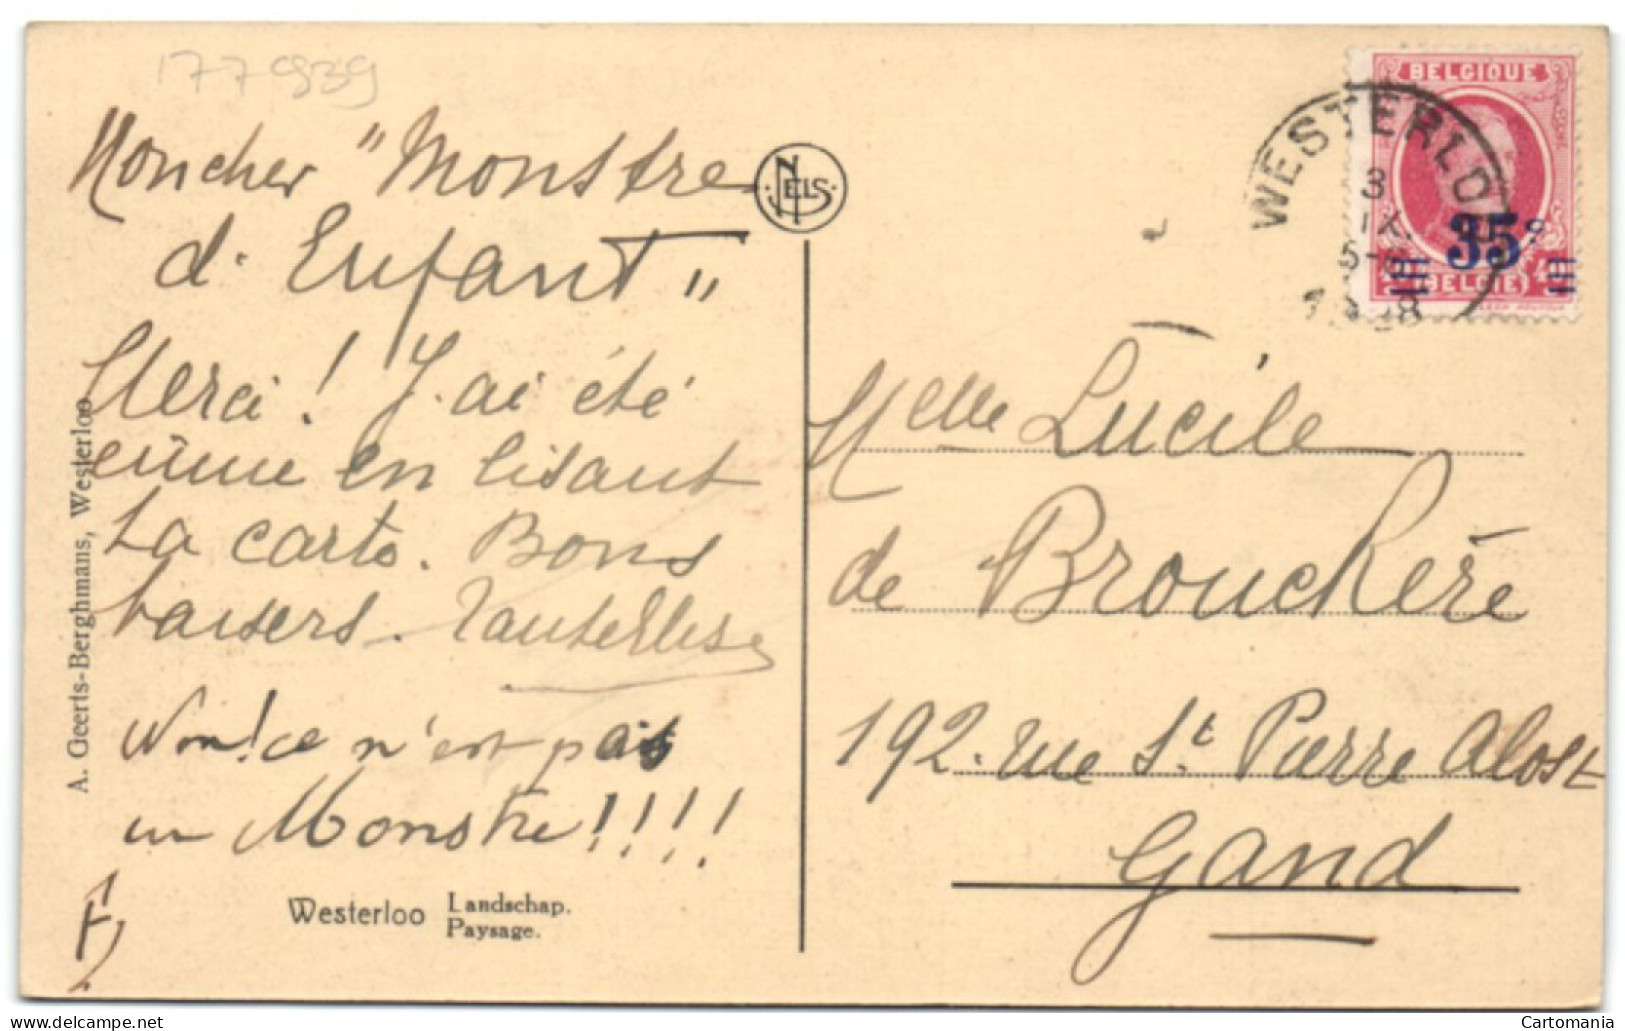 177939
Moncher "Monstre
d'Enfant"
Merci ! J'ai été
émue en lisant
ta carte. Bons
baisers.
Non! ce n'est pas
un Monstre!!!!
A. Geerts-Berghmans, Westerloo
Westerloo Landschap.
Paysage.
NELS
BELGIQUE
WESTERLOO
3
IX.
35c
(BELGIË)
Melle Lucile
de Brouchère
192. rue St. Pierre Alost
Gand
delcampe.net
Cartomania